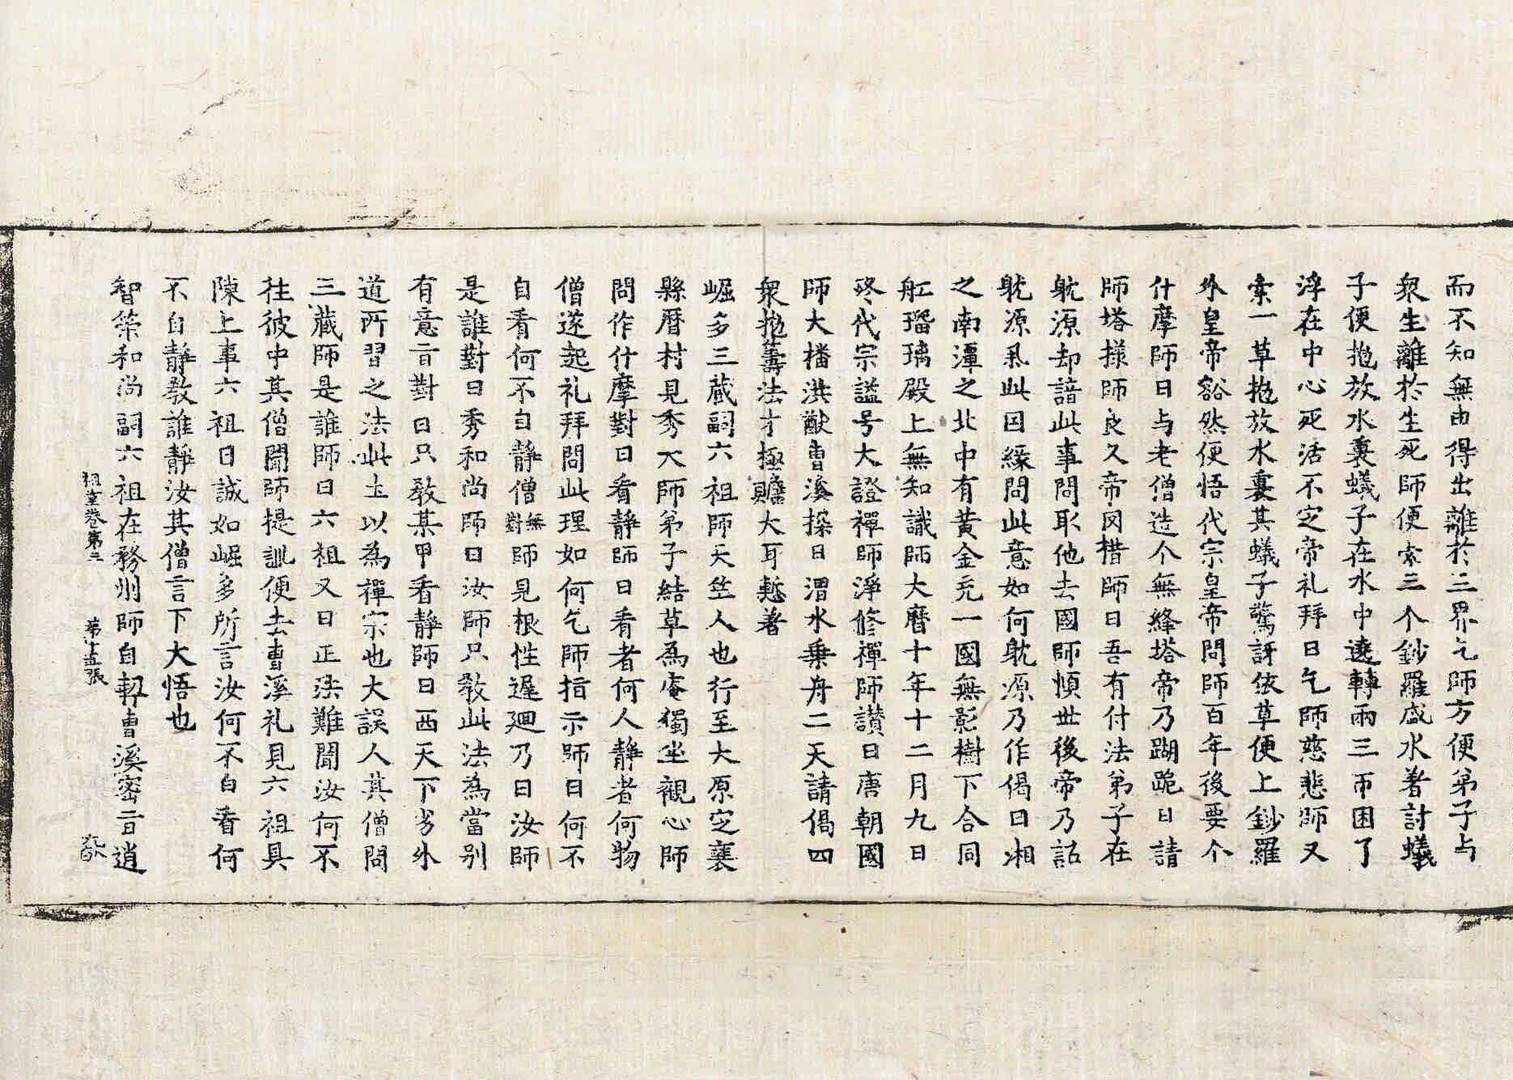 而不知無由得出離於三界乞師方便弟子与
衆生離於生死師便索三个鈔羅盛水著討蟻
子便抛放水裏蟻子在水中遶轉兩三帀困了
浮在中心死活不定帝礼拜曰乞師慈悲師又
索一草抛放水裏其蟻子驚訝依草便上鈔羅
外皇帝豁然便悟代宗皇帝問師百年後要个
什摩師曰与老僧造个無縫塔帝乃蹋跪曰請
師塔様師良久帝罔措師曰吾有付法弟子在
躭源却諳此事問取他去國師順世後帝乃詔
躭源㪯此因緣問此意如何躭源乃作偈曰湘
之南潭之北中有黄金充一國無影樹下合同
舡瑠璃殿上無知識師大曆十年十二月九日
終代宗謚号大證禪師淨修禪師讃曰唐朝國
師大播洪猷曹溪探日渭水乗舟二天請偈四
衆抛籌法才極贍大耳慙著
崛多三藏嗣六祖師天竺人也行至大原定襄
縣曆村見秀大師弟子結草為庵獨坐觀心師
問作什摩對曰看靜師曰看者何人靜者何物
僧遂起礼拜問此理如何乞師指示師曰何不
自看何不自靜僧無對師見根性遲廻乃曰汝師
是誰對曰秀和尚師曰汝師只教此法為當別
有意旨對曰只教某甲看靜師曰西天下劣外
道所習之法此土以為禪宗也大誤人其僧問
三藏師是誰師曰六祖又曰正法難聞汝何不
往彼中其僧聞師提訓便去曹溪礼見六祖具
陳上事六祖曰誠如崛多所言汝何不自看何
不自靜教誰靜汝其僧言下大悟也
智策和尚嗣六祖在務州師自契曹溪密旨逍
祖堂卷第三 第十五張